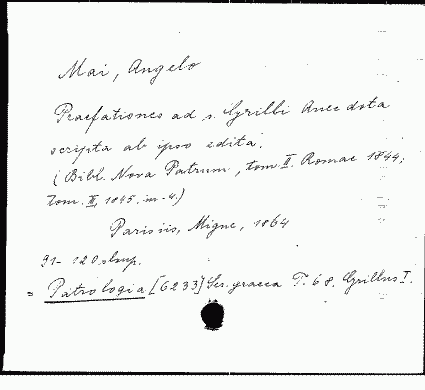 Mai, Angelo
Praefationes ad s. Cyrilli Anecdota
scripta ab ipso edita.
(Bibl. Nova Patrum, tom II. Romae 1844;
tom. III, 1845. in-4.)
Parisiis, Migne, 1864
91-120 slup.
= Patrologia [6233] Ser. graeca T. 68. Cyrillus I.